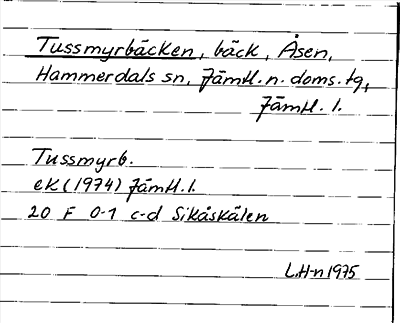 Tussmyrbäcken, bäck, Åsen,
Hammerdals sn, Jämtl. n. doms. tg,
Jämtl. l.
Tussmyrb.
eK (1974) Jämtl. l.
20 F 0-1 c-d Sikåskälen
L.H-n 1975